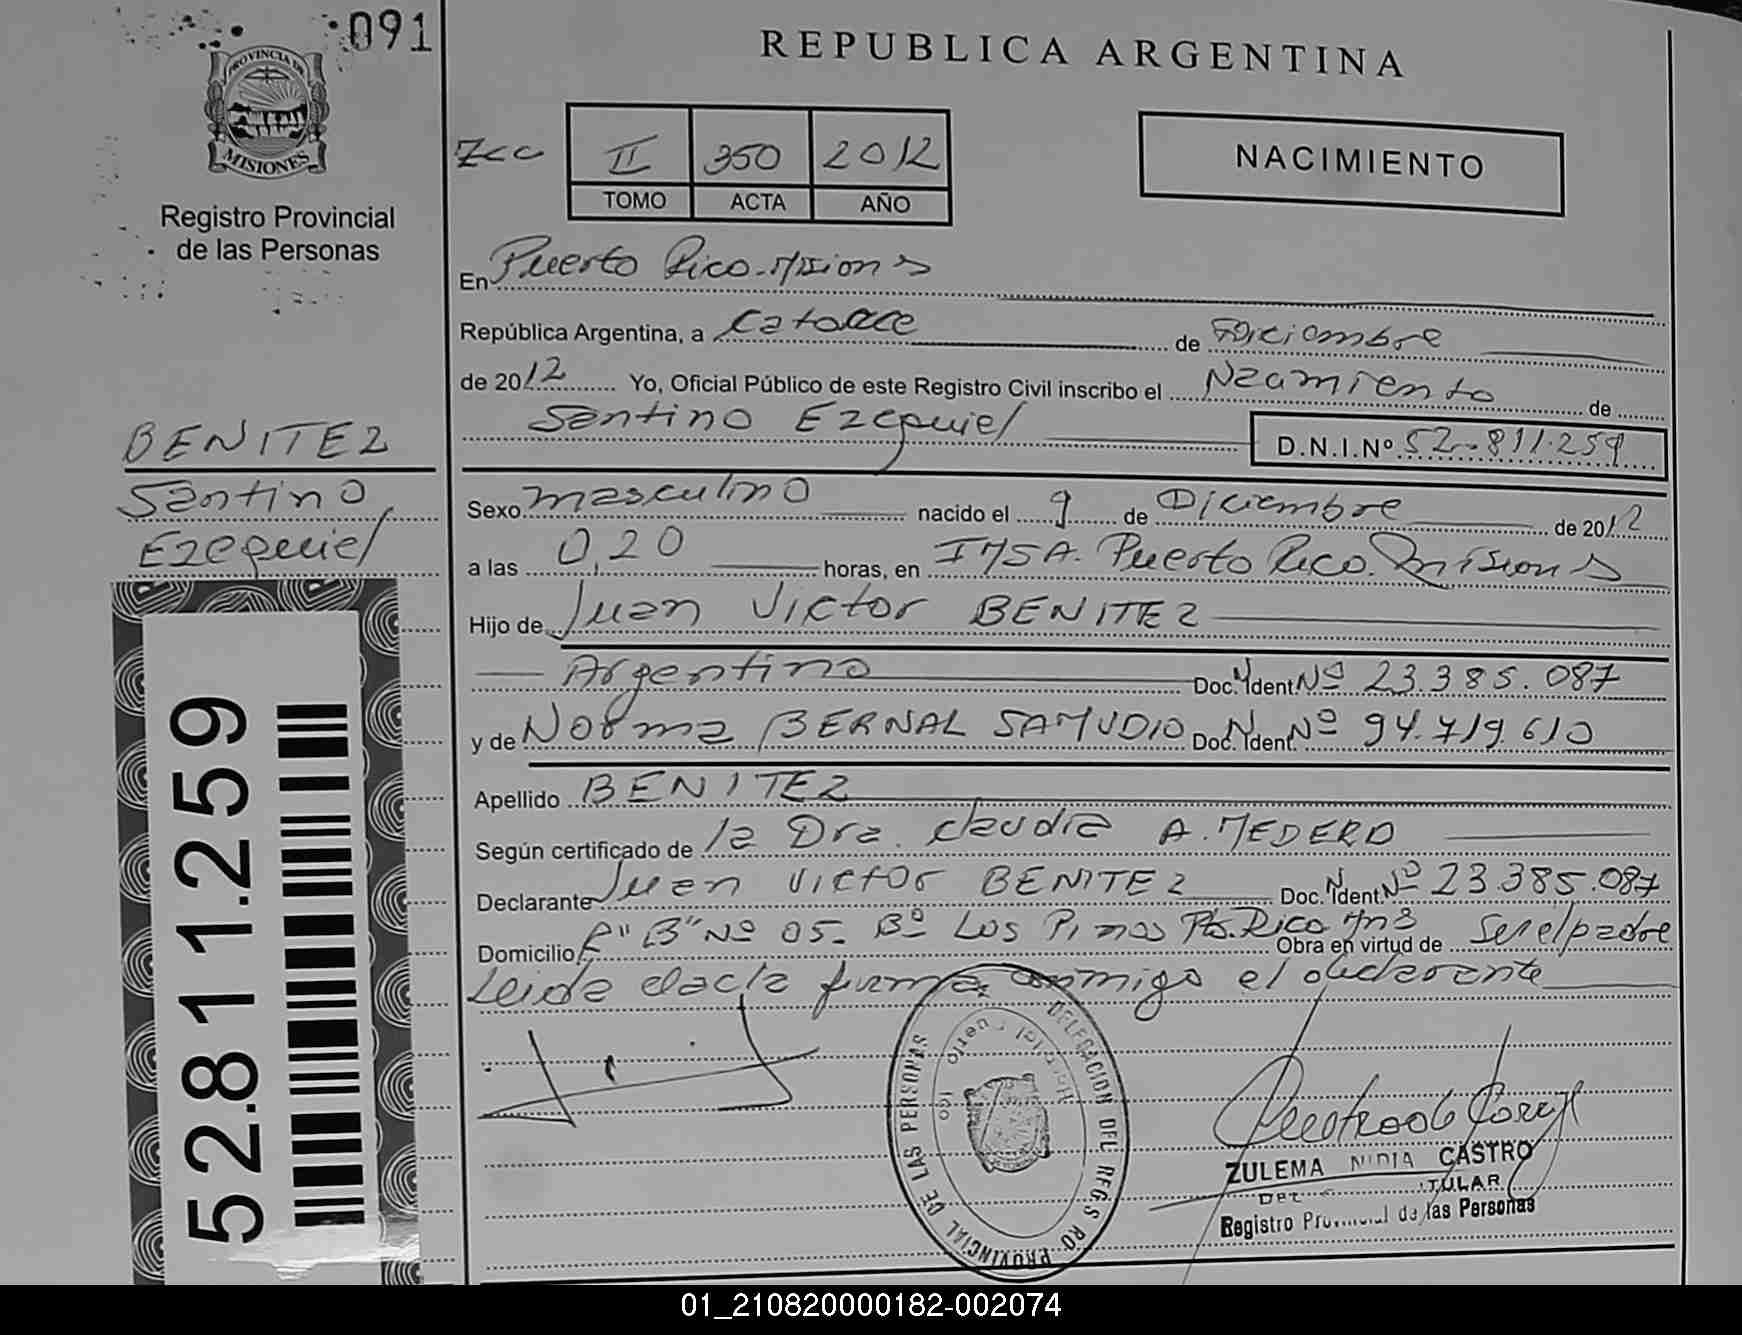 091
PROVINCIA DE
MISIONES
Registro Provincial
de las Personas
BENITEZ
Santino
Ezequiel
52.811.259
REPUBLICA ARGENTINA
II 350 2012
TOMO ACTA AÑO
NACIMIENTO
En Puerto Rico-Misiones
República Argentina, a Catorce de Diciembre
de 2012 Yo, Oficial Público de este Registro Civil inscribo el Nacimiento de
Santino Ezequiel D.N.I.Nº 52.811.259
Sexo masculino nacido el 9 de Diciembre de 2012
a las 0,20 horas, en Puerto Rico. Misiones
Hijo de Juan Victor BENITEZ
Argentino Doc. Ident Nº 23.385.087
y de Norma BERNAL SAMUDIO Doc. Ident. Nº 94.719.610
Apellido BENITEZ
Según certificado de la Dra. Claudia A. MEDERO
Declarante Juan Victor BENITEZ Doc. Ident. Nº 23.385.087
Domicilio "B" Nº 05- Bº Los Pinos Pto. Rico Mns Obra en virtud de Ser el padre
Leida el acta firma conmigo el declarante
DELEGACION DEL REGISTRO PROVINCIAL DE LAS PERSONAS
ZULEMA NIDIA CASTRO
Registro Provincial de las Personas
01_210820000182-002074